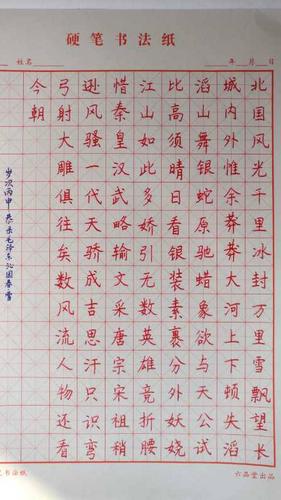 硬笔书法纸
姓名 年 月 日
北国风光千里冰封万里雪飘望长
城内外惟余莽莽大河上下顿失滔
滔山舞银蛇原驰蜡象欲与天公试
比高须晴日看银装素裹分外妖娆
江山如此多娇引无数英雄竞折腰
惜秦皇汉武略输文采唐宗宋祖稍
逊风骚一代天骄成吉思汗只识弯
弓射大雕俱往矣数风流人物还看
今朝
岁次丙申 恭录毛泽东沁园春雪
书法纸 六品堂出品